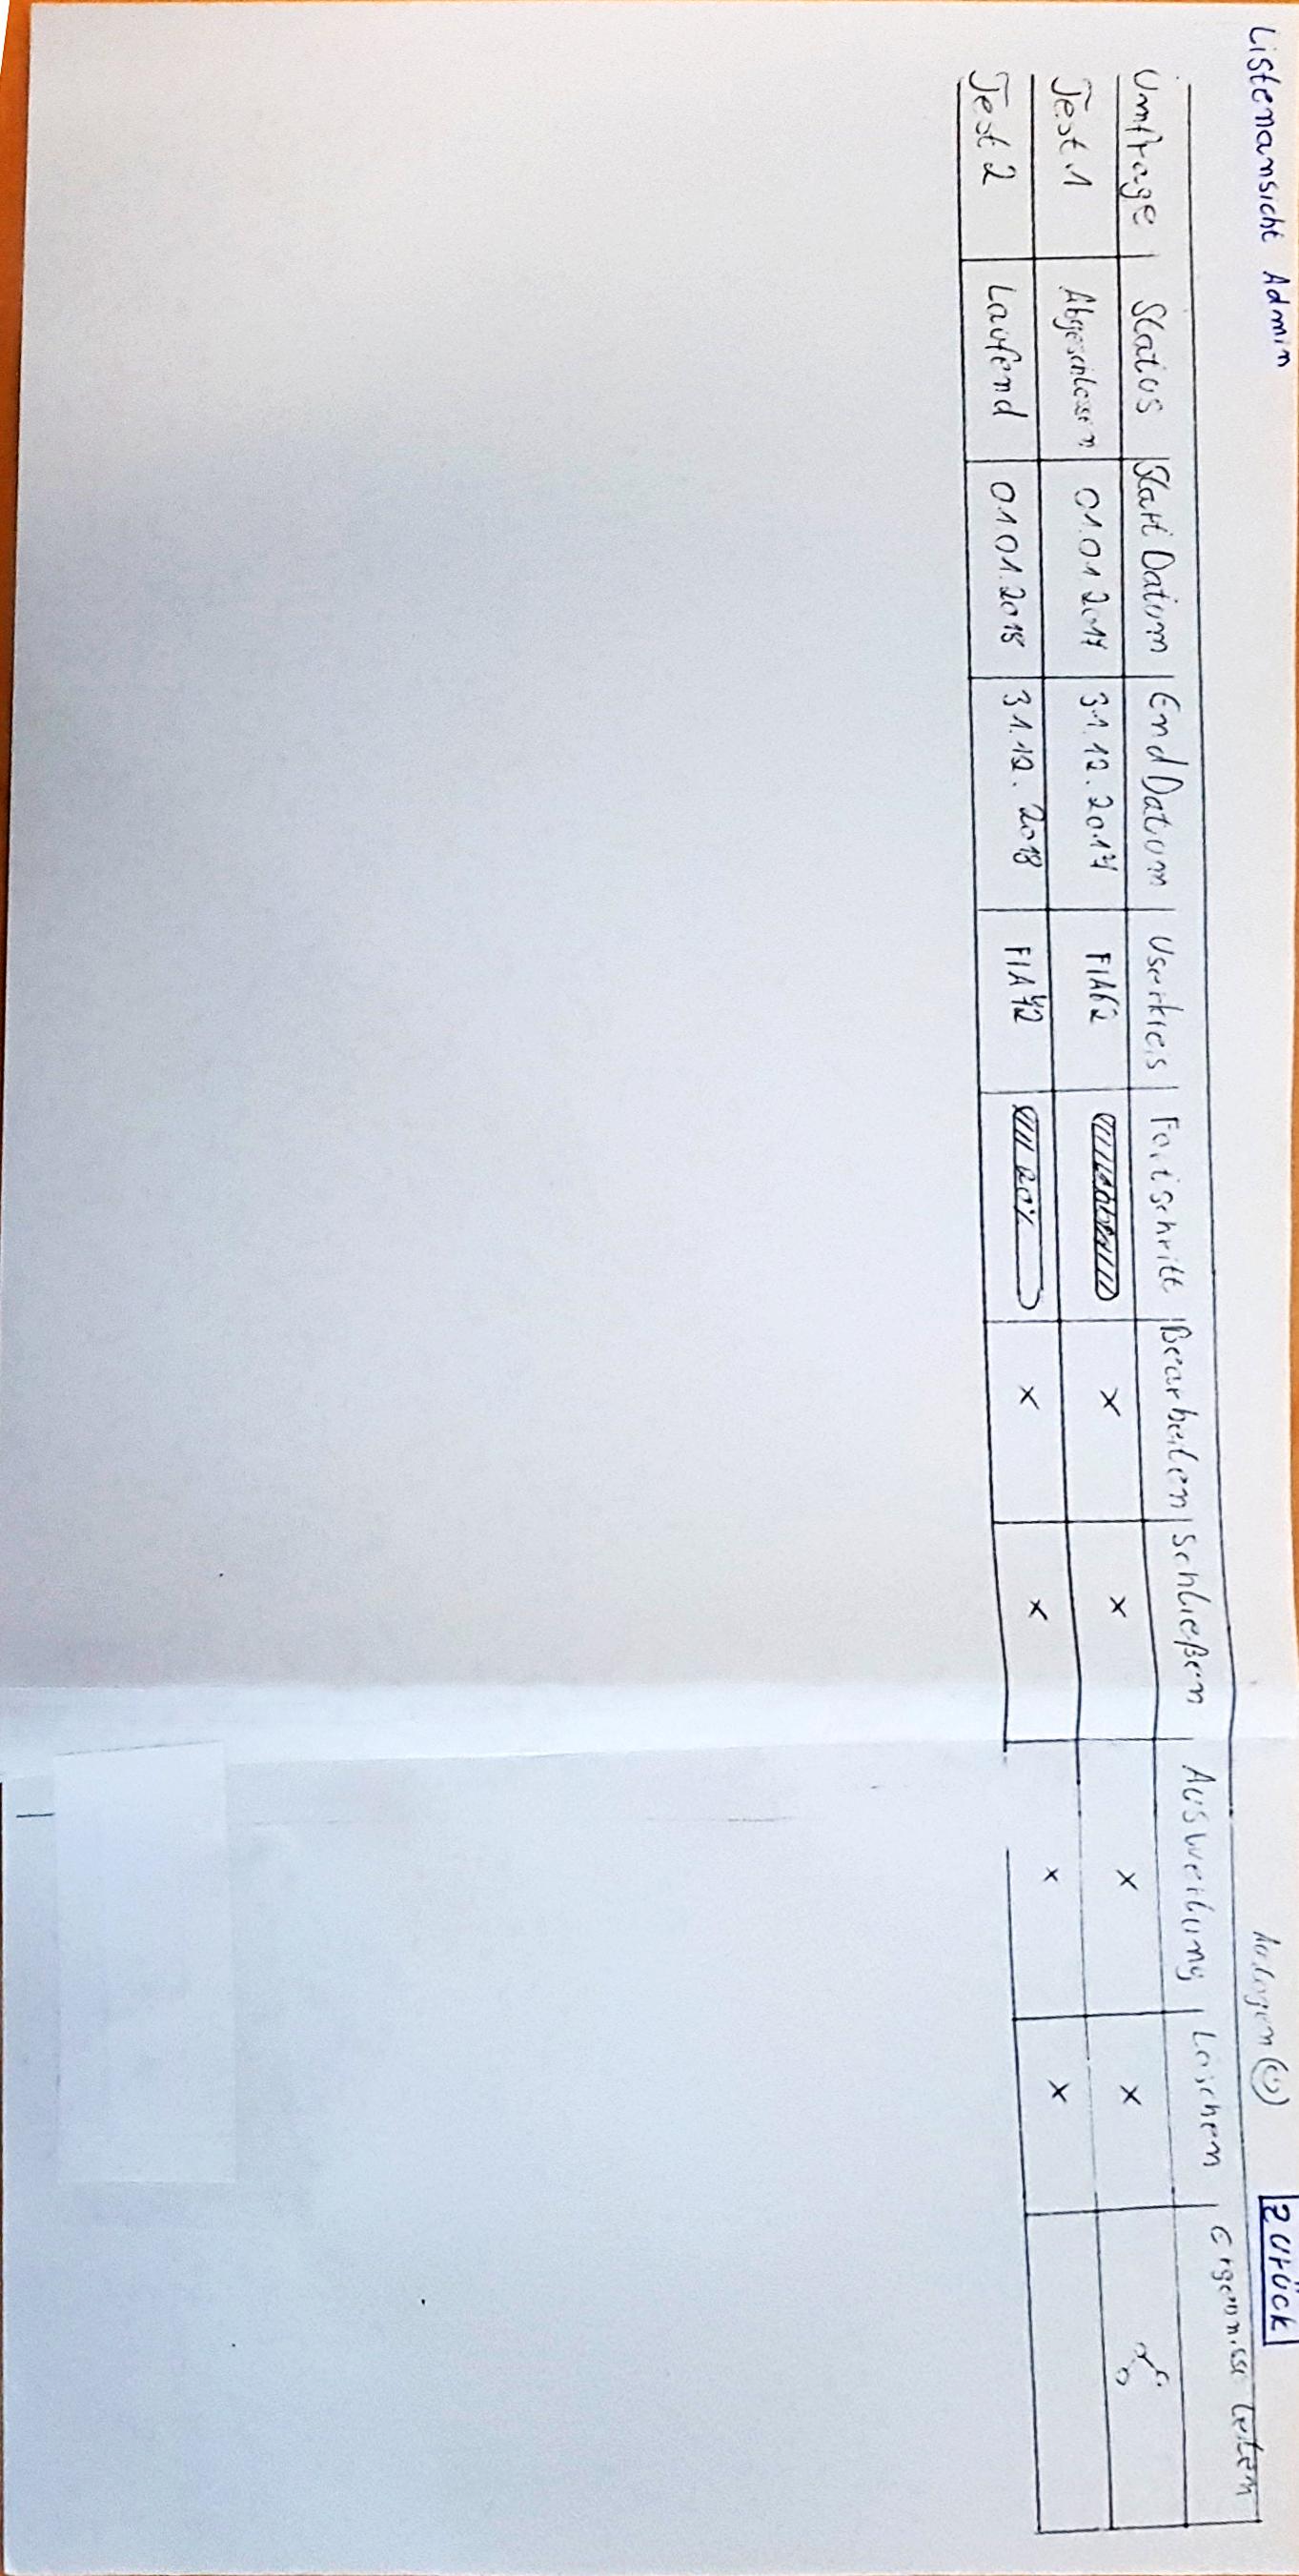 Listenansicht Admin
Zurück
Umfrage Status Start Datum End Datum Userkreis Fortschritt Bearbeiten Schließen Auswertung Löschen Ergebnisse teilen
Test 1 Abgeschlossen 01.01.2017 31.12.2017 FIA62 X X X X
Test 2 Laufend 01.01.2018 31.12.2018 FIA72 20% X X X X